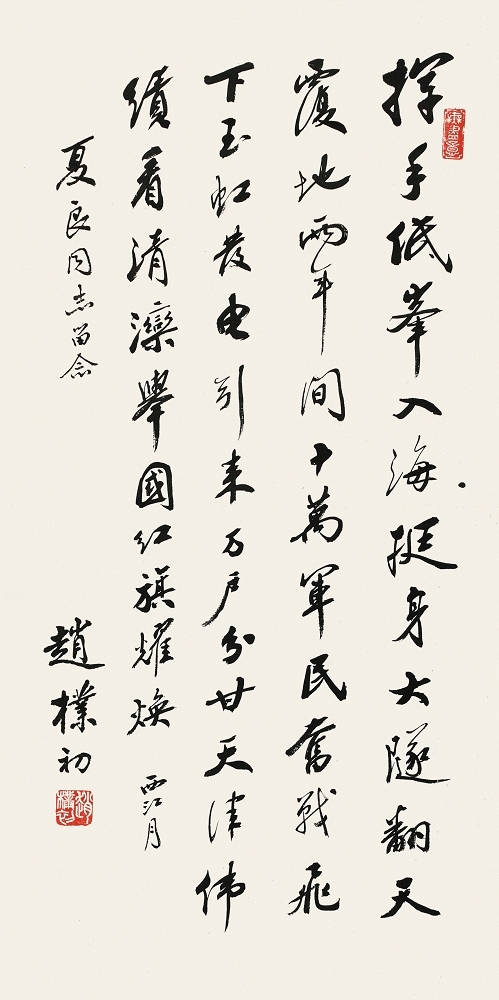 挥手低峯入海挺身大隧翻天
覆地两年间十萬軍民奮戰飛
下玉虹發电引来万户分甘天津伟
績看清灤舉國红旗耀焕 西江月
夏良同志留念
趙樸初
無盡意
趙樸初